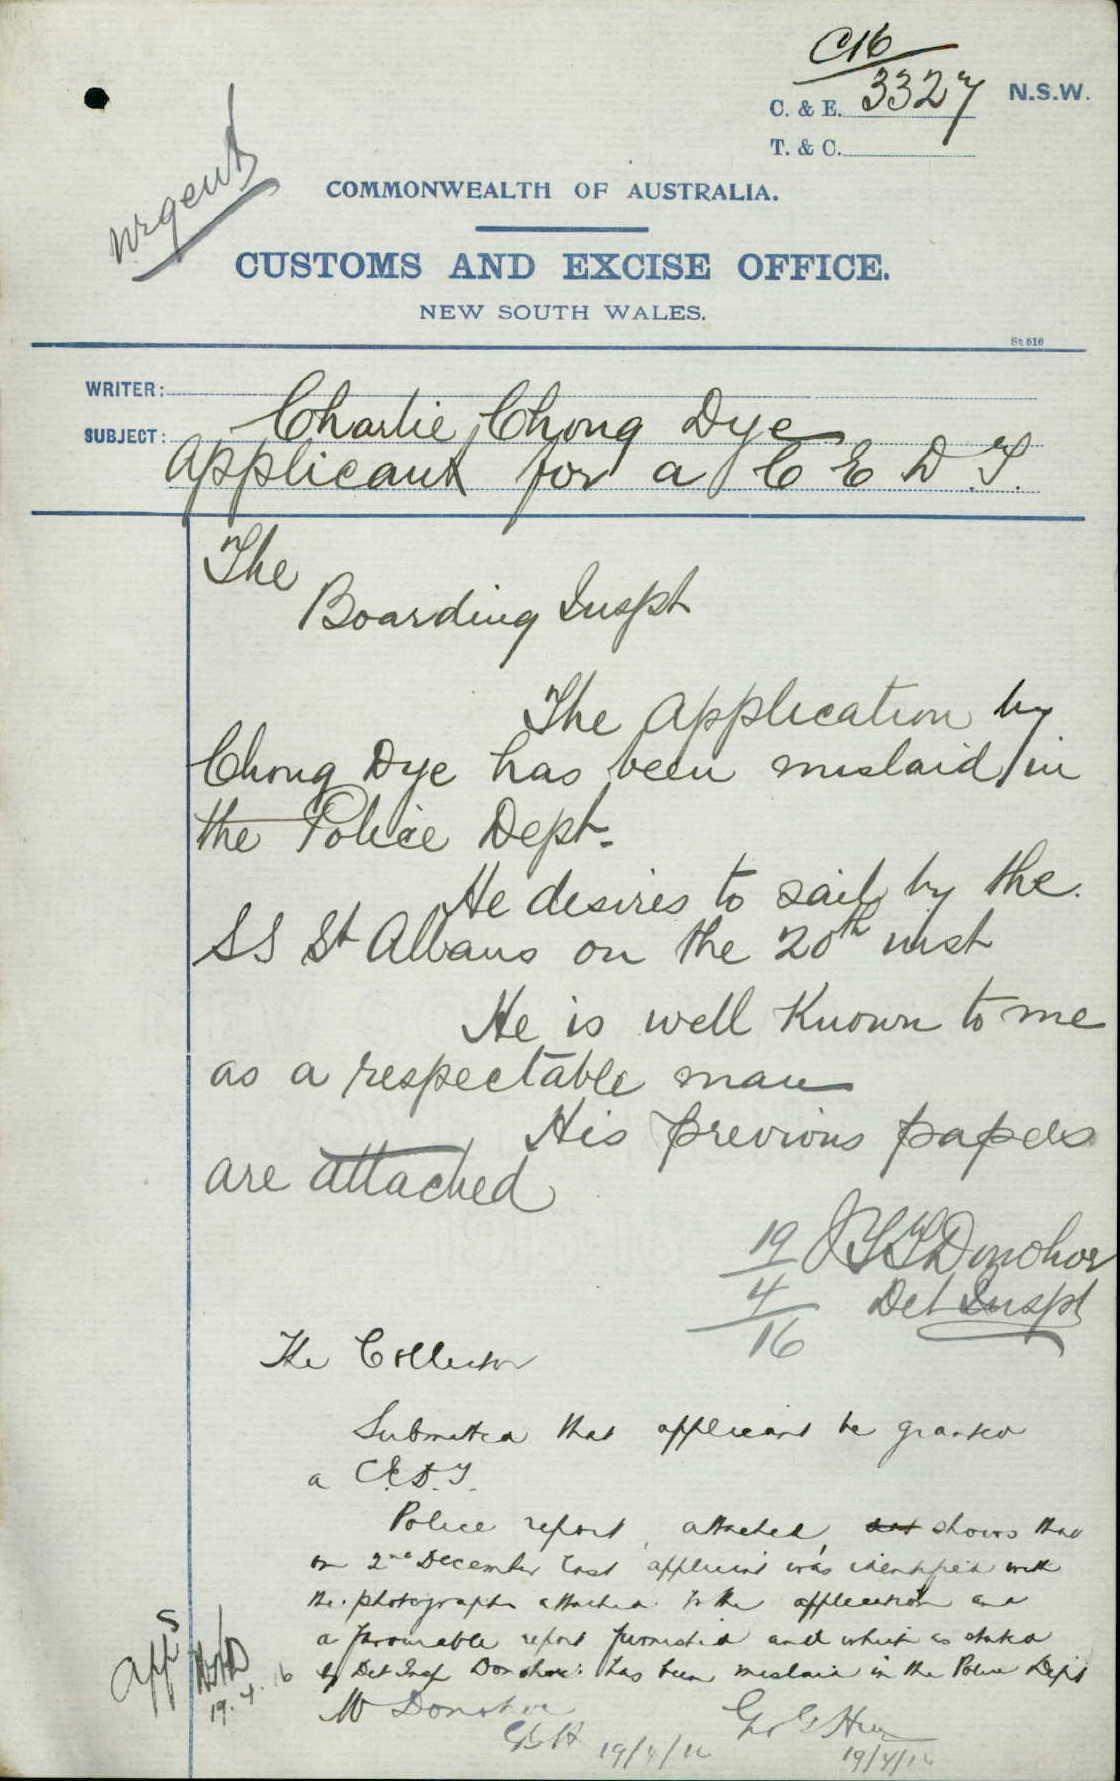 C16
3327
C. & E.
N.S.W.
T. & C.
Urgent
COMMONWEALTH OF AUSTRALIA.
CUSTOMS AND EXCISE OFFICE.
NEW SOUTH WALES.
St 516
WRITER:
SUBJECT: Charlie Chong Dye
Applicant for a C E D T.
The
Boarding Inspt
The Application by
Chong Dye has been mislaid in
the Police Dept.
He desires to sail by the
SS St Albans on the 20th inst
He is well Known to me
as a respectable man
His previous papers
are attached
19 Donohoe
4 Det Inspt
16
The Collector
Submitted that applicant be granted
a C.E.D.T.
Police report, attached, shows that
on 2nd December last applicant was identified with
the photographs attached to the application and
a favourable report furnished and which as stated
by Det Insp Donohoe: has been mislaid in the Police Dept
App
19.4.16
Mr Donohoe
19/4/16
19/4/16